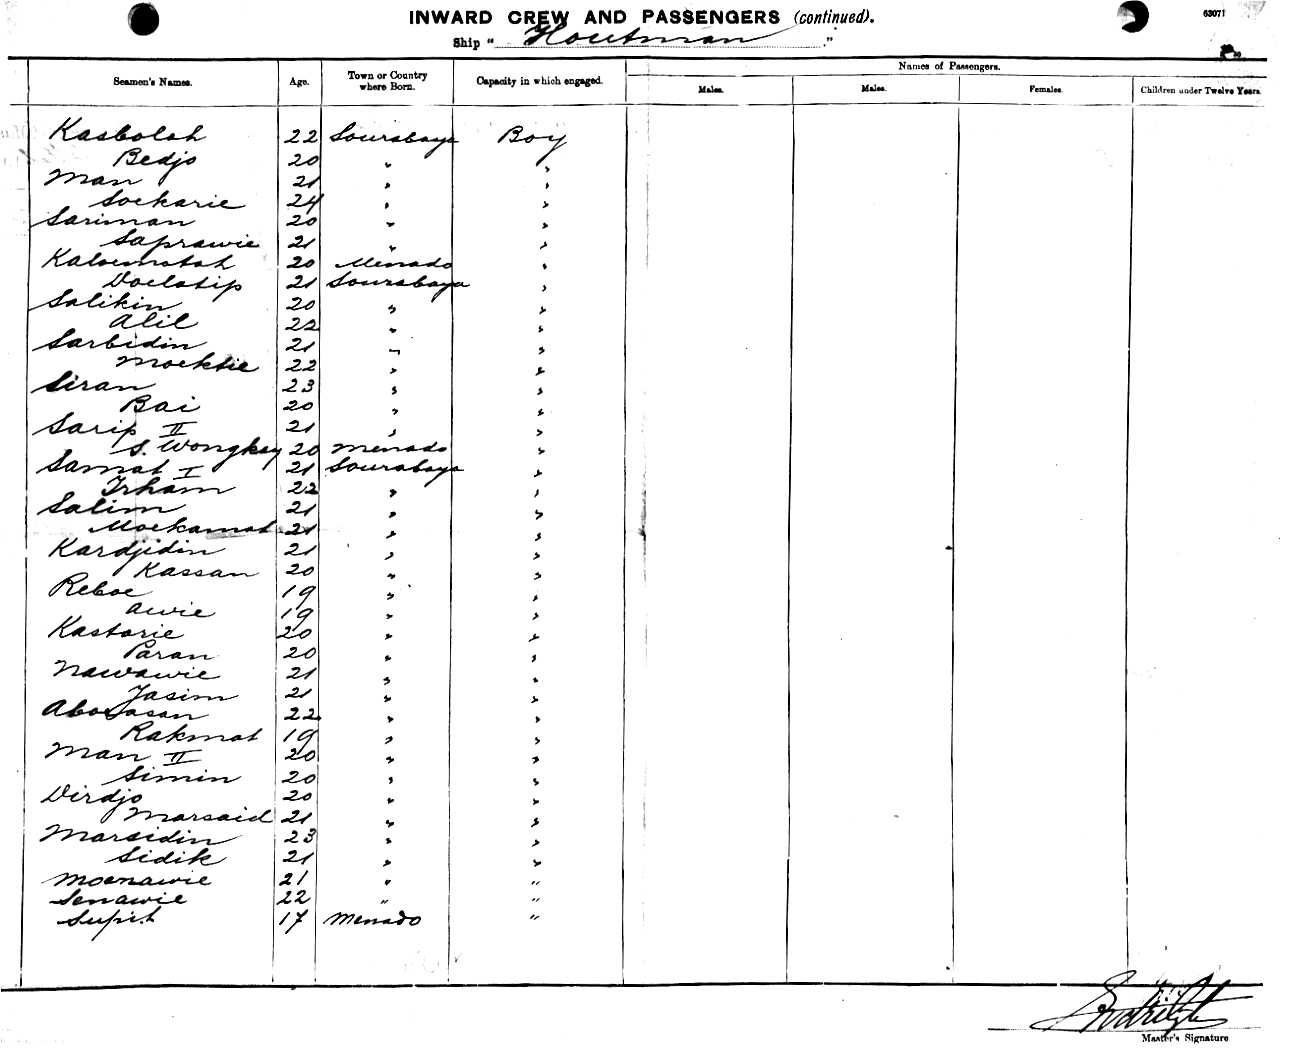 INWARD CREW AND PASSENGERS (continued).
63071
Ship " Houtman ."
Seamen's Names. Age. Town or Country where Born. Capacity in which engaged. Names of Passengers.
Males. Males. Females. Children under Twelve Years.
Kasbolah 22 Sourabaya Boy
Bedjo 20 " "
Man 21 " "
Soekarie 24 " "
Sariman 20 " "
Saprawie 21 " "
Kaloematah 20 Menado "
Doelatip 21 Sourabaya "
Salikin 20 " "
Alil 22 " "
Sarbidin 21 " "
Moektie 22 " "
Siran 23 " "
Bai 20 " "
Sarip II 21 " "
S. Wongkay 20 Menado "
Samat I 21 Sourabaya "
Irham 22 " "
Salim 21 " "
Moekamat 21 " "
Kardjidin 21 " "
Kassan 20 " "
Reboe 19 " "
Awie 19 " "
Kastarie 20 " "
Paran 20 " "
Nawawie 21 " "
Jasim 21 " "
Abocasan 22 " "
Rakmat 19 " "
Man II 20 " "
Simin 20 " "
Dirdjo 20 " "
Marsaid 21 " "
Marsidin 23 " "
Sidik 21 " "
Moenawie 21 " "
Senawie 22 " "
Supit 17 Menado "
Master's Signature